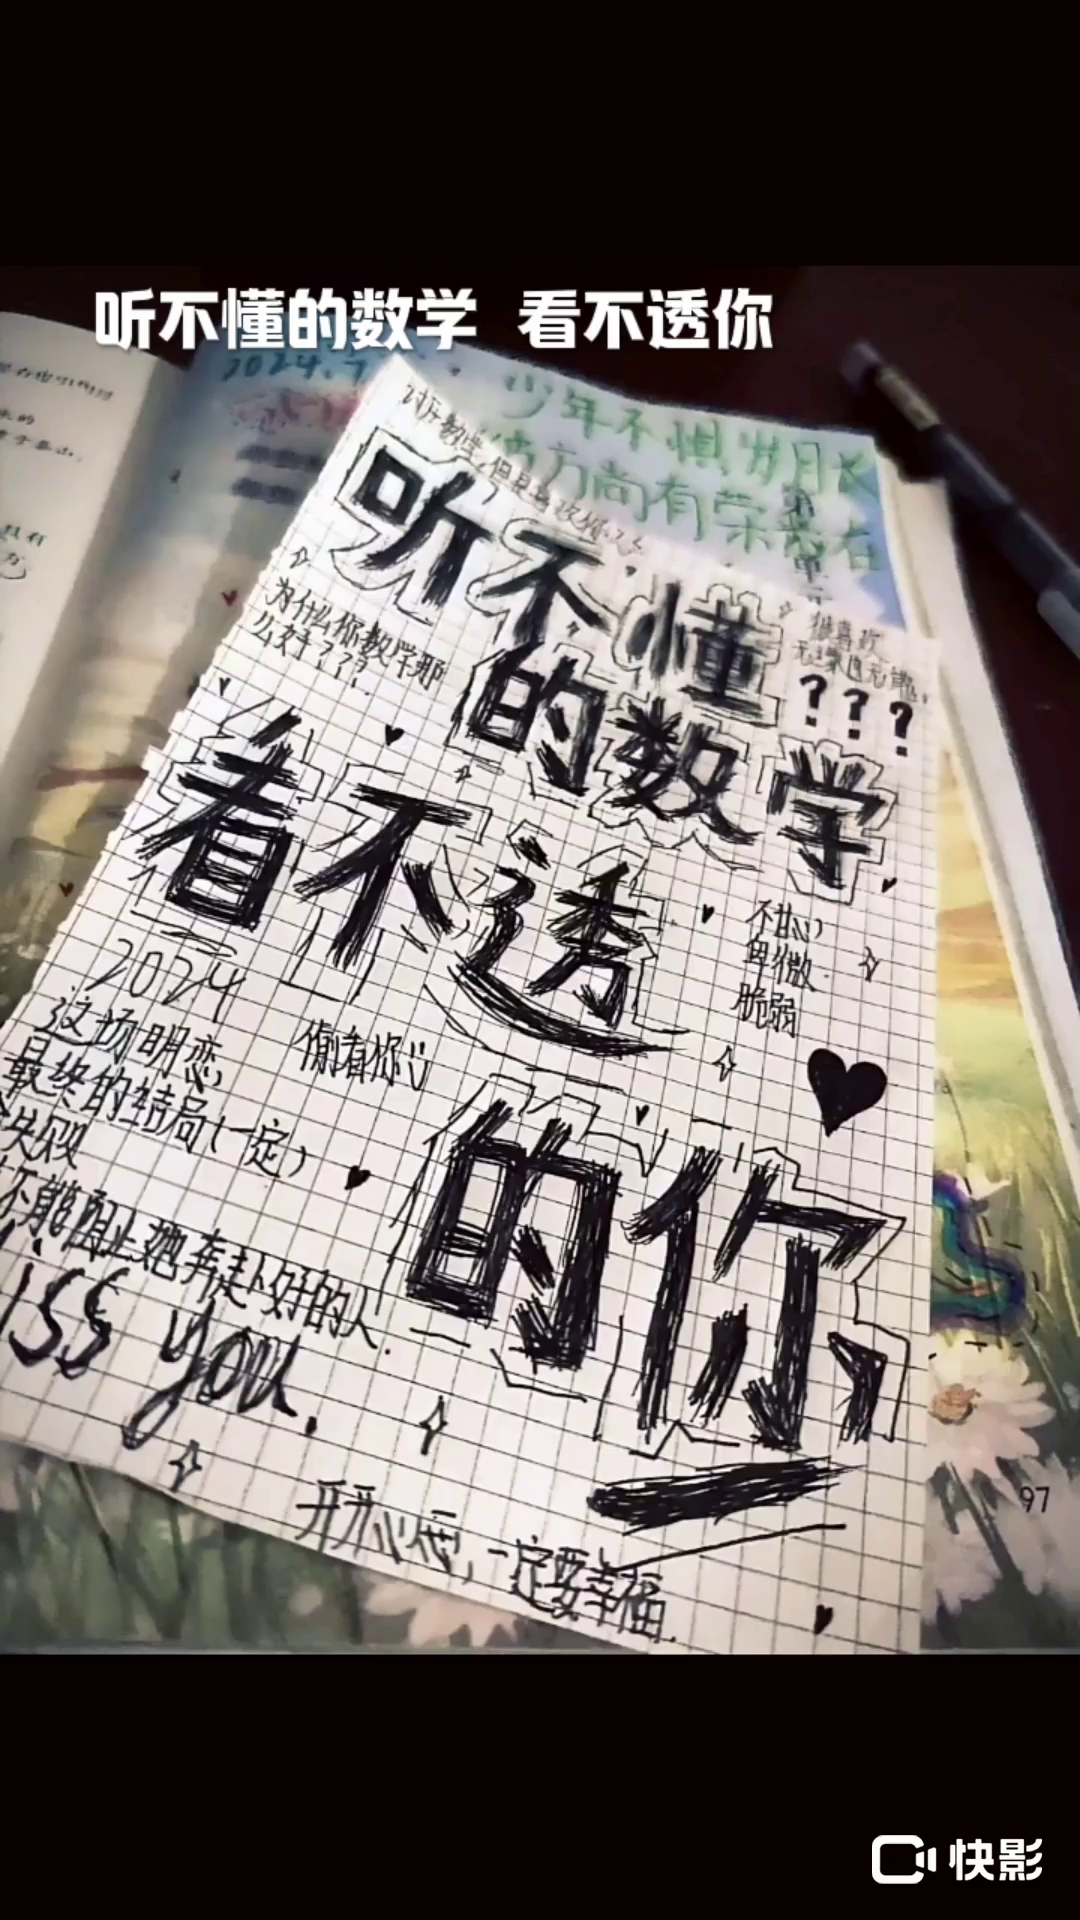 听不懂的数学 看不透你
2024.7
少年不惧岁月长
彼方尚有荣光在
讨厌数学,但是喜欢你
听不懂
为什么你数学那
么好???
很喜欢
无理由无
???
的数学
看不透
不甘心
卑微
脆弱
2024
这场明恋
最终的结局(一定)
失败
偷看你
不能阻止她奔走下一个好的人.
iss you.
的你
开开心心,一定要幸福.
97
快影